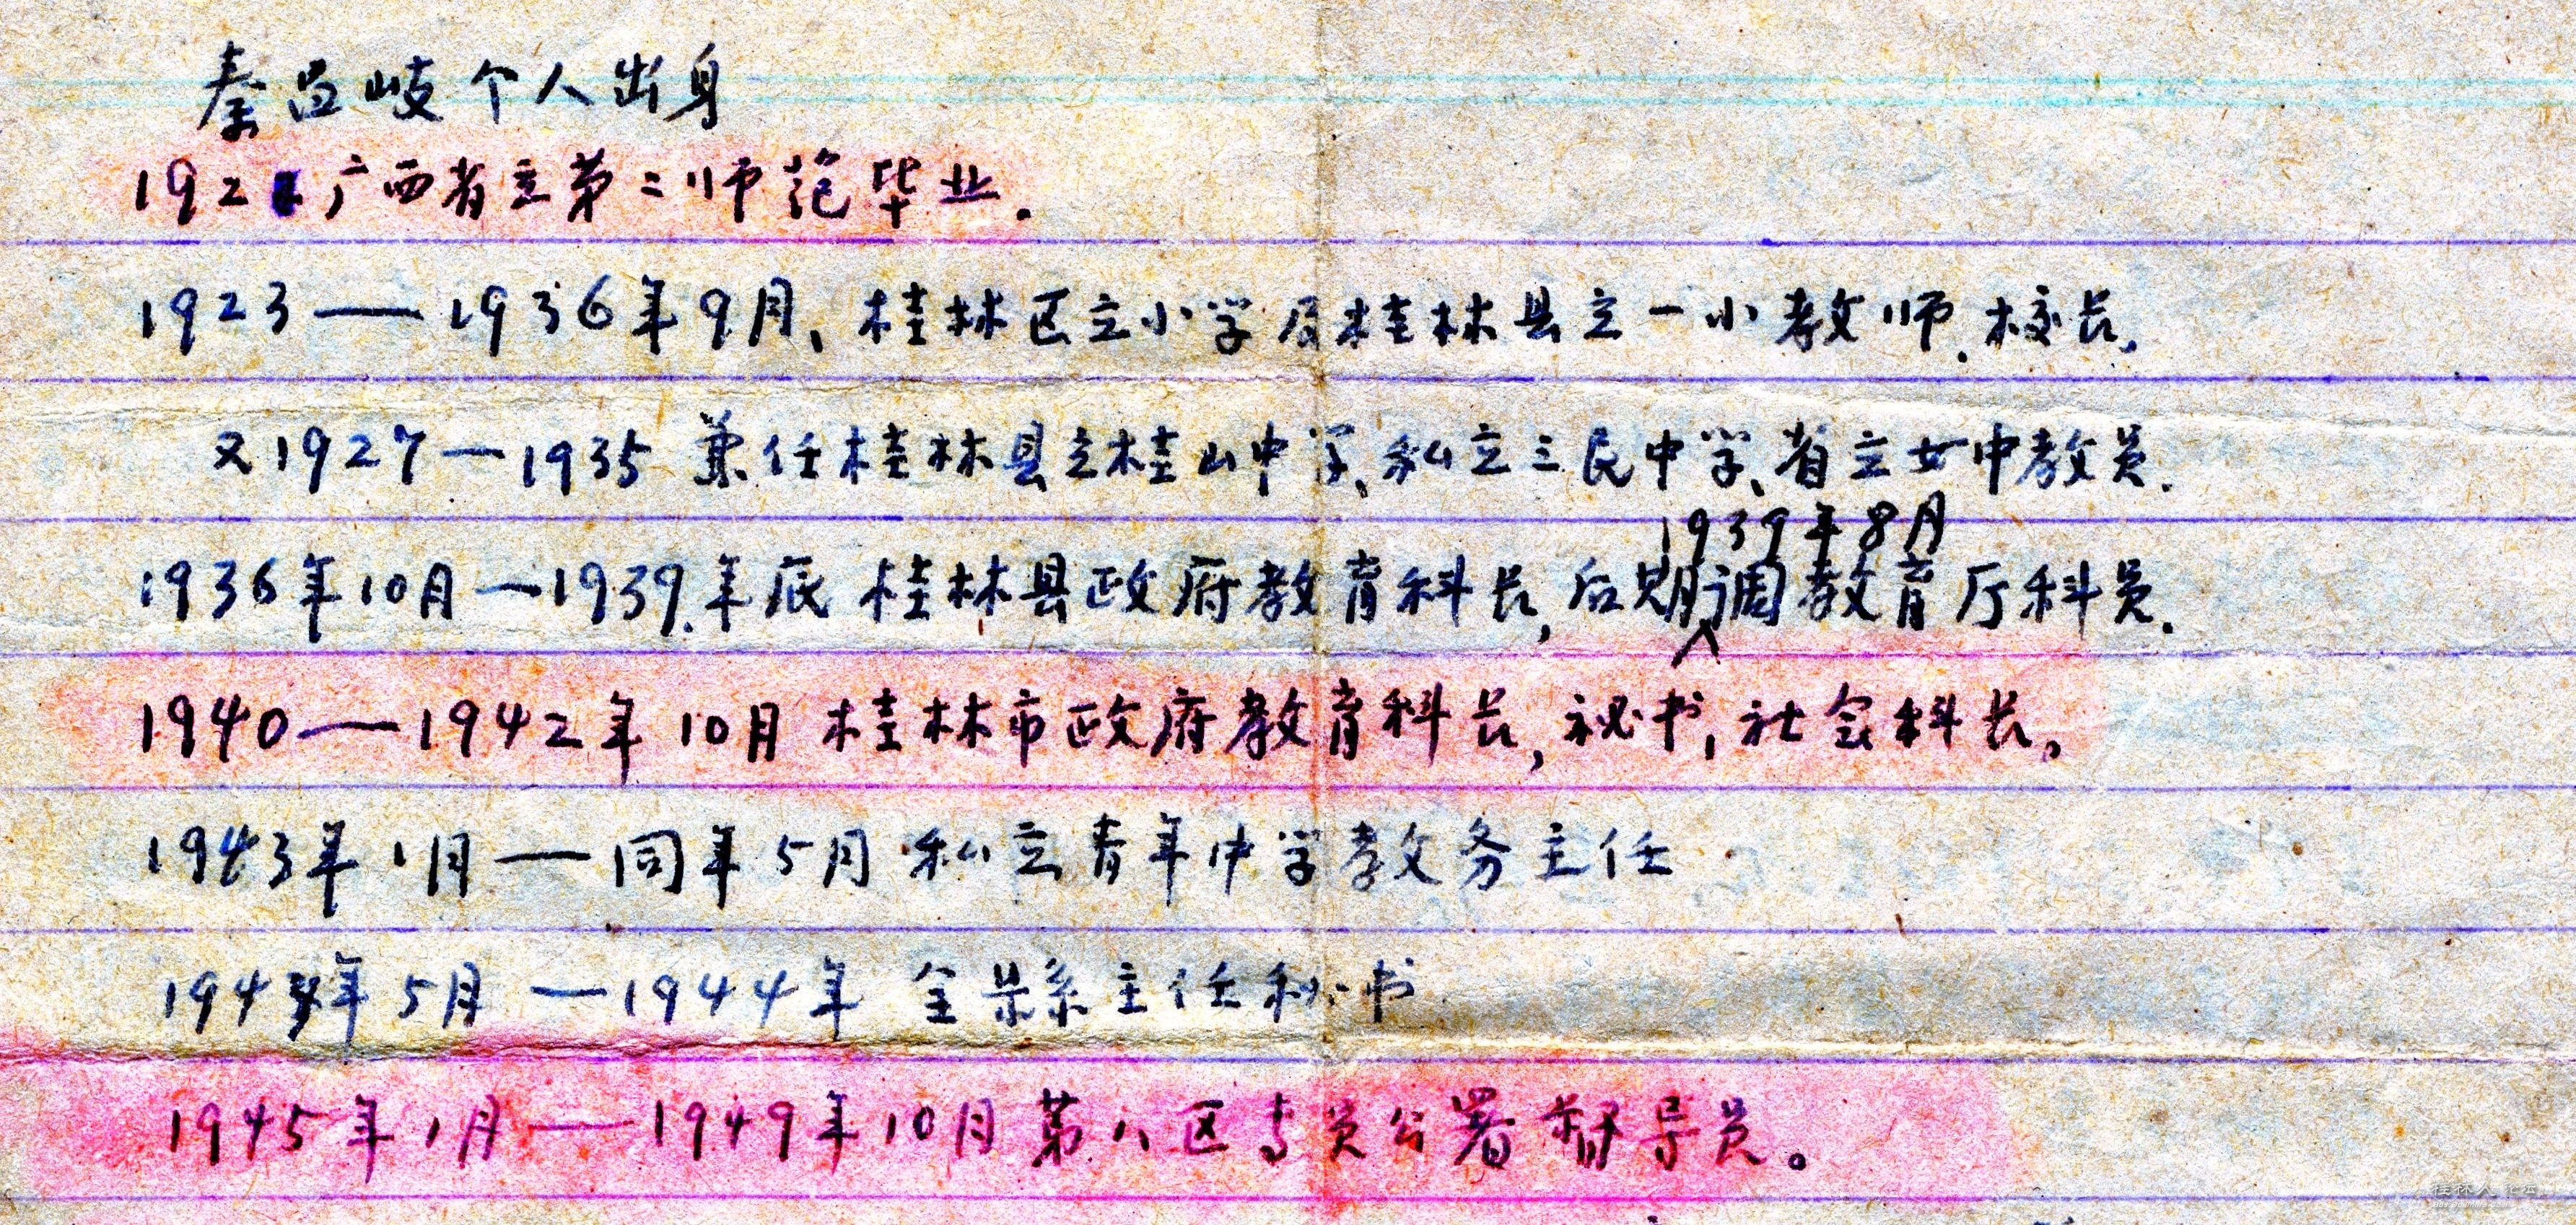 秦吕岐个人出身
192 广西省立第二师范毕业.
1923——1936年9月、桂林区立小学及桂林县立一小教师.校长,
又1927—1935 兼任桂林县立桂山中学、私立三民中学、省立女中教员.
1939年8月
1936年10月—1939.年底 桂林县政府教育科长,后期调教育厅科员.
1940——1942年10月 桂林市政府教育科长,秘书,社会科长,
1943年1月——同年5月 私立青年中学教务主任
194年5月 —1944年 全县 主任秘书
1945年1月——1949年10月 第八区专员公署督导员。
桂林人论坛